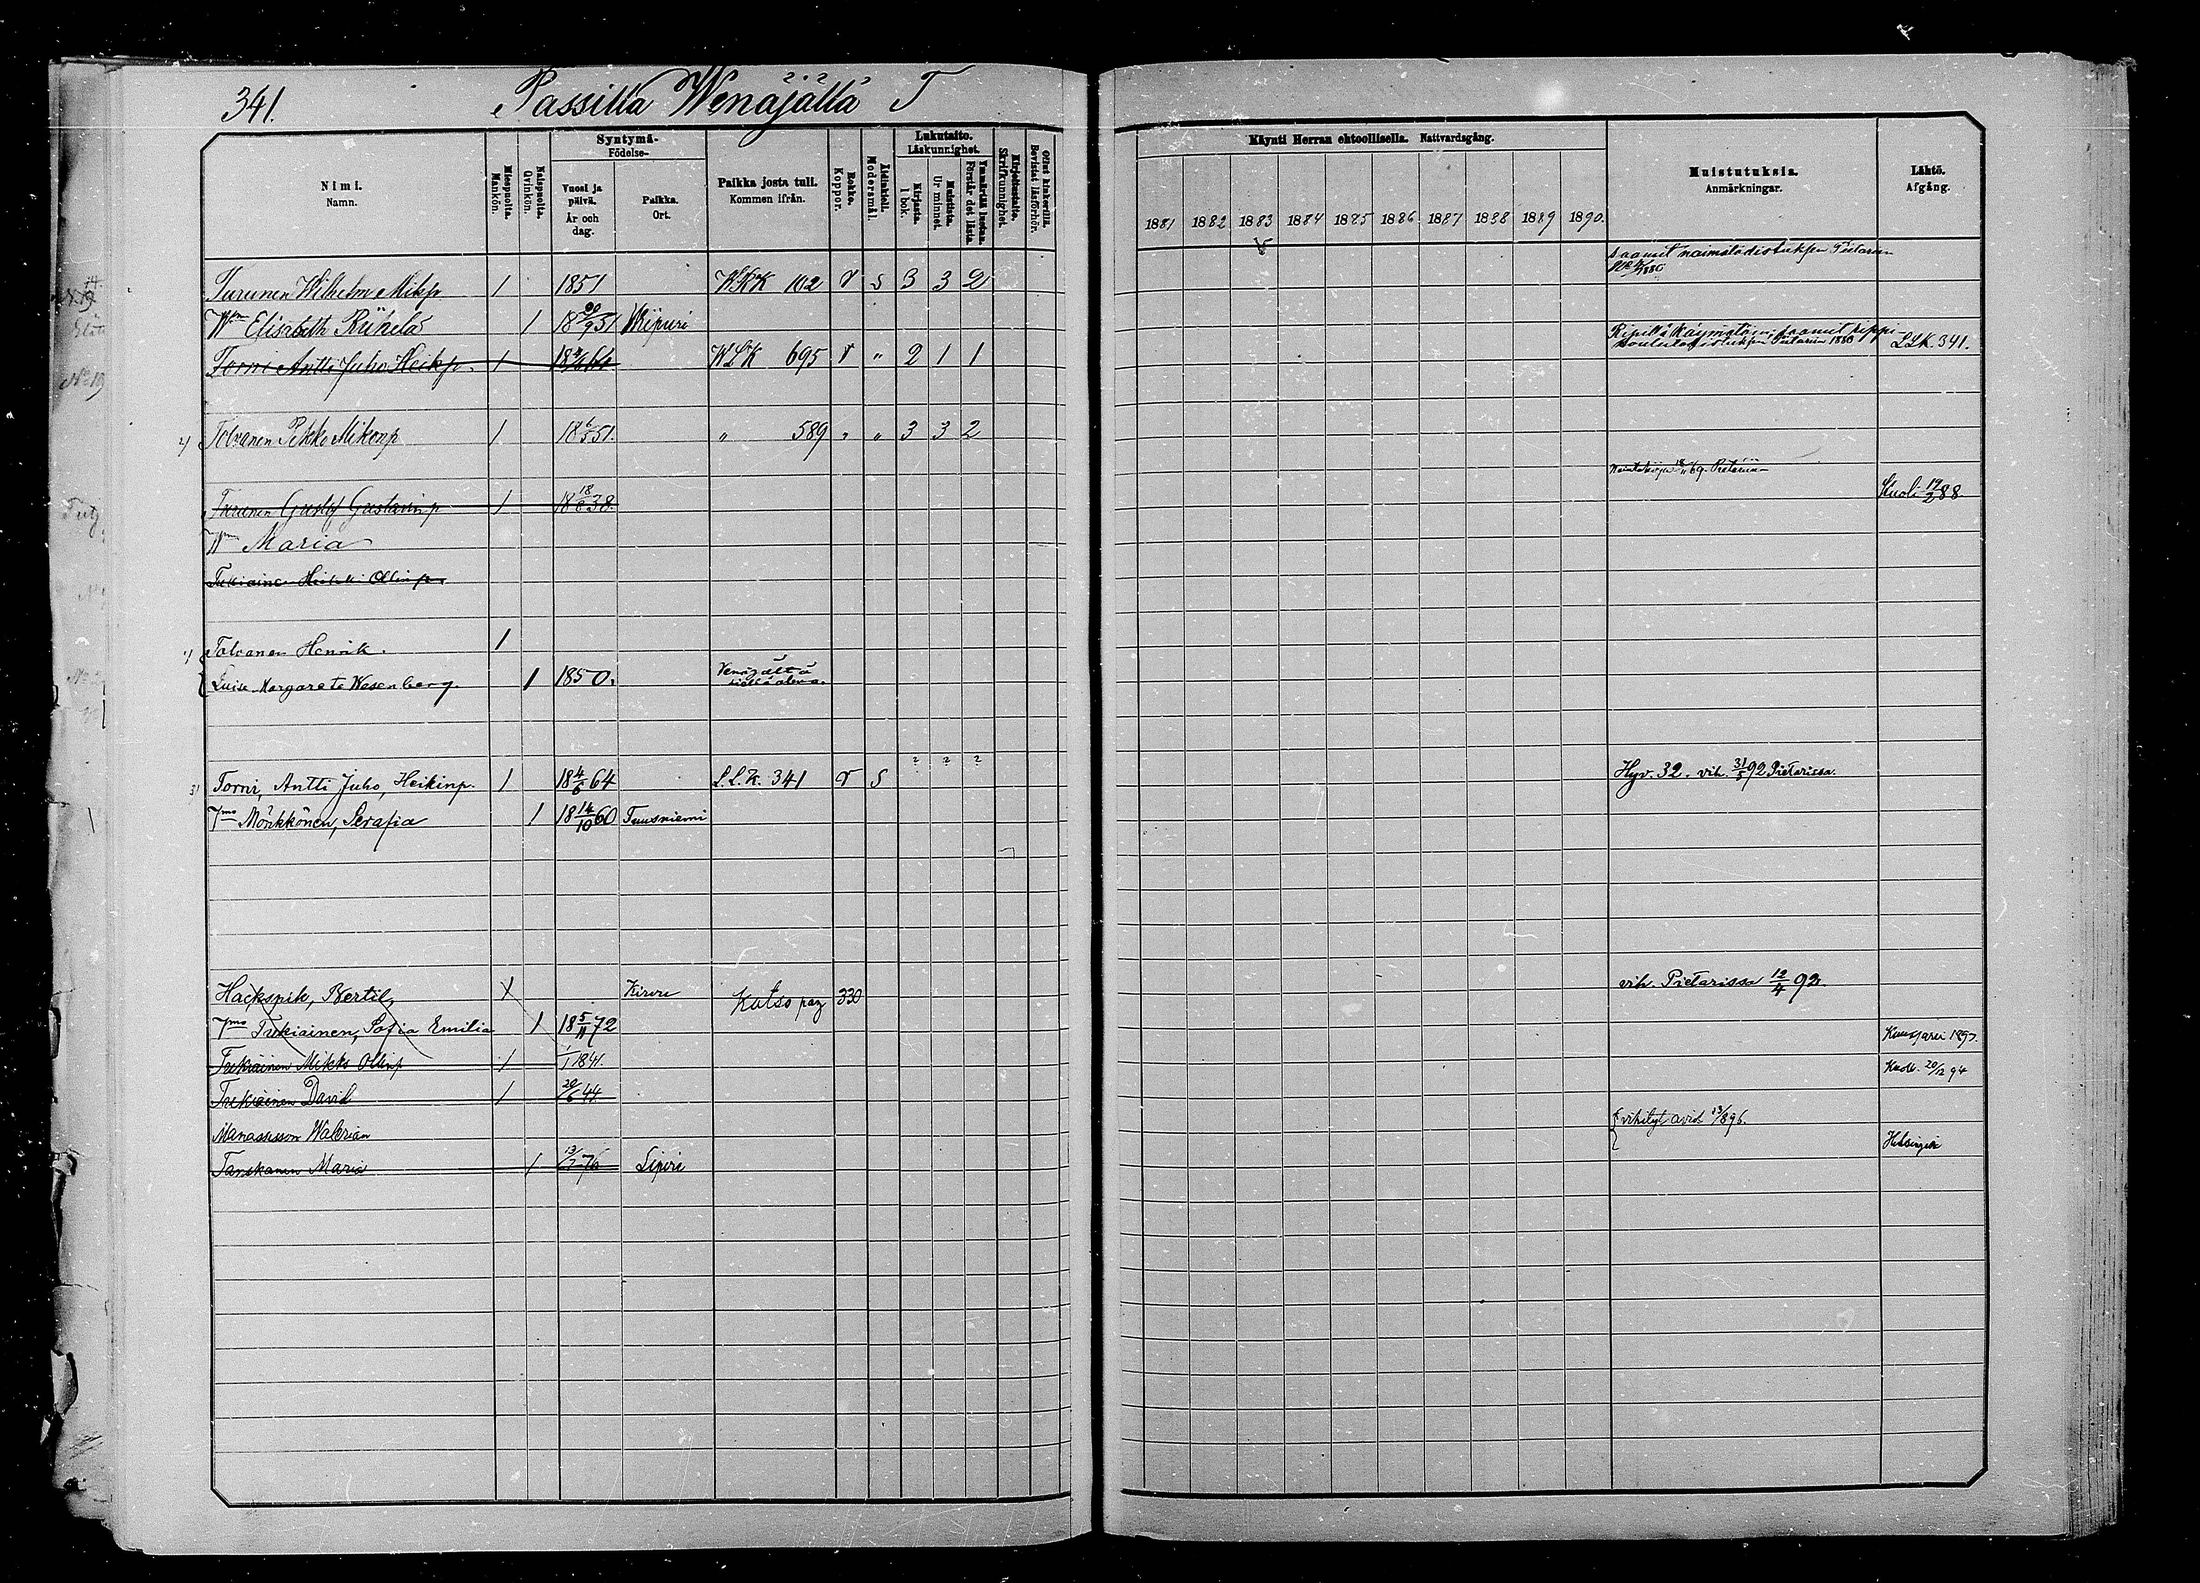 341. Passilla Wenäjällä T
Nimi. Namn.
Miespuolta. Mankön.
Naispuolta. Qvinkön.
Syntymä- Födelse-
Vuosi ja päivä. År och dag.
Paikka. Ort.
Paikka josta tuli. Kommen ifrån.
Rokko. Koppor.
Äidinkieli. Modersmål.
Lukutaito. Läskunnighet.
Kirjasta. I bok.
Muistista. Ur minnet.
Ymmärtää lustaa. Förstår det lästa.
Kirjoitustaito. Skrifkunnighet.
Ollut kinkerillä. Bevistat läseförhör.
Käynti Herran ehtoollisella. Nattvardsgång.
1881 1882 1883 1884 1885 1886 1887 1888 1889 1890.
Muistutuksia. Anmärkningar.
Lähtö. Afgång.
Turunen Wilhelm Mikp 1 1851 KKK 102 r S 3 3 2
Wmo Elisabeth Riihelä 1 18 20/9 51 Wiipuri
Torni Antti Juho Heikp. 1 18 4/6 64 WLK 695 r " 2 1 1 LLK. 341.
2) Tolvanen Pekka Mikonp 1 18 6/5 51. " 589 " " 3 3 2
Turunen Gustaf Gustavinp 1 18 18/8 38. Kuoli 19/2 88.
Wmo Maria
Tukiainen Heikki Ollinp.
Tolvanen Henrik. 1
Luise Margarete Wesenberg. 1 1850. Venäjältä
3) Torni, Antti Juho, Heikinp. 1 18 4/6 64 L.L.K. 341 r S ? ? ? Hyv. 32. vih. 31/5 92 Pietarissa.
Vmo Mönkkönen, Serafia 1 18 14/10 60 Tuusniemi
Hackspik, Bertil, 1 Kirvu Katso pag 330 vih. Pietarissa 12/4 92.
Vmo Tukiainen, Sofia Emilia 1 18 5/11 72
Tukiainen Mikko Ollinp 1 1/1 1841.
Tukiainen David 1 20/6 44. Kuoli. 20/12 94
Manassesson Walerian
Tanskanen Maria 1 13/7 76 Liperi Helsinkiin